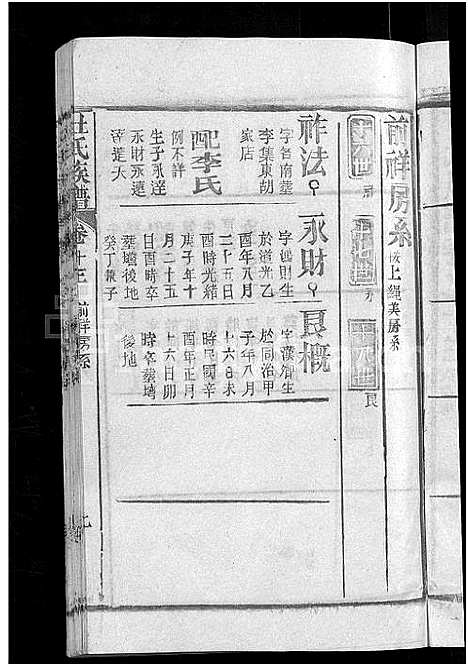 前祥房系 接上繩美房系
十六世 祚
十七世 永
十八世 良
祚法
字省南墓
李集東胡
家店
配李氏
例不詳
生子永逹
永財永遠
永財
字鴻則生
於道光乙
酉年八月
二十五日
酉時光緒
庚子年十
月二十五
日酉時卒
墓墻後地
癸丁兼子
良概
字漢
生
於同治甲
子年八月
十六日未
時民國辛
酉年正月
十六日卯
時卒墓墻
後地
杜氏族譜
卷十三
前祥房系
七